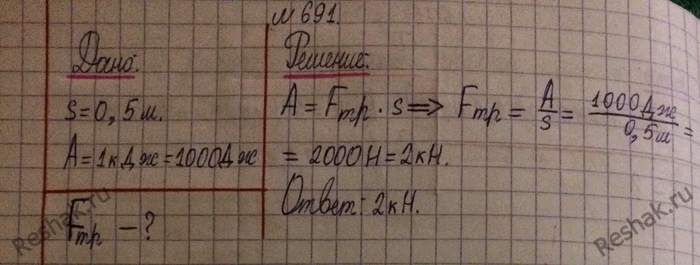 № 691.
Дано:
s=0,5м.
A=1кДж=1000Дж
Fтр -?
Решение:
A = Fтр · s => Fтр = A/s = 1000Дж/0,5м =
= 2000Н=2кН.
Ответ: 2кН.
Reshak.ru
Reshak.ru